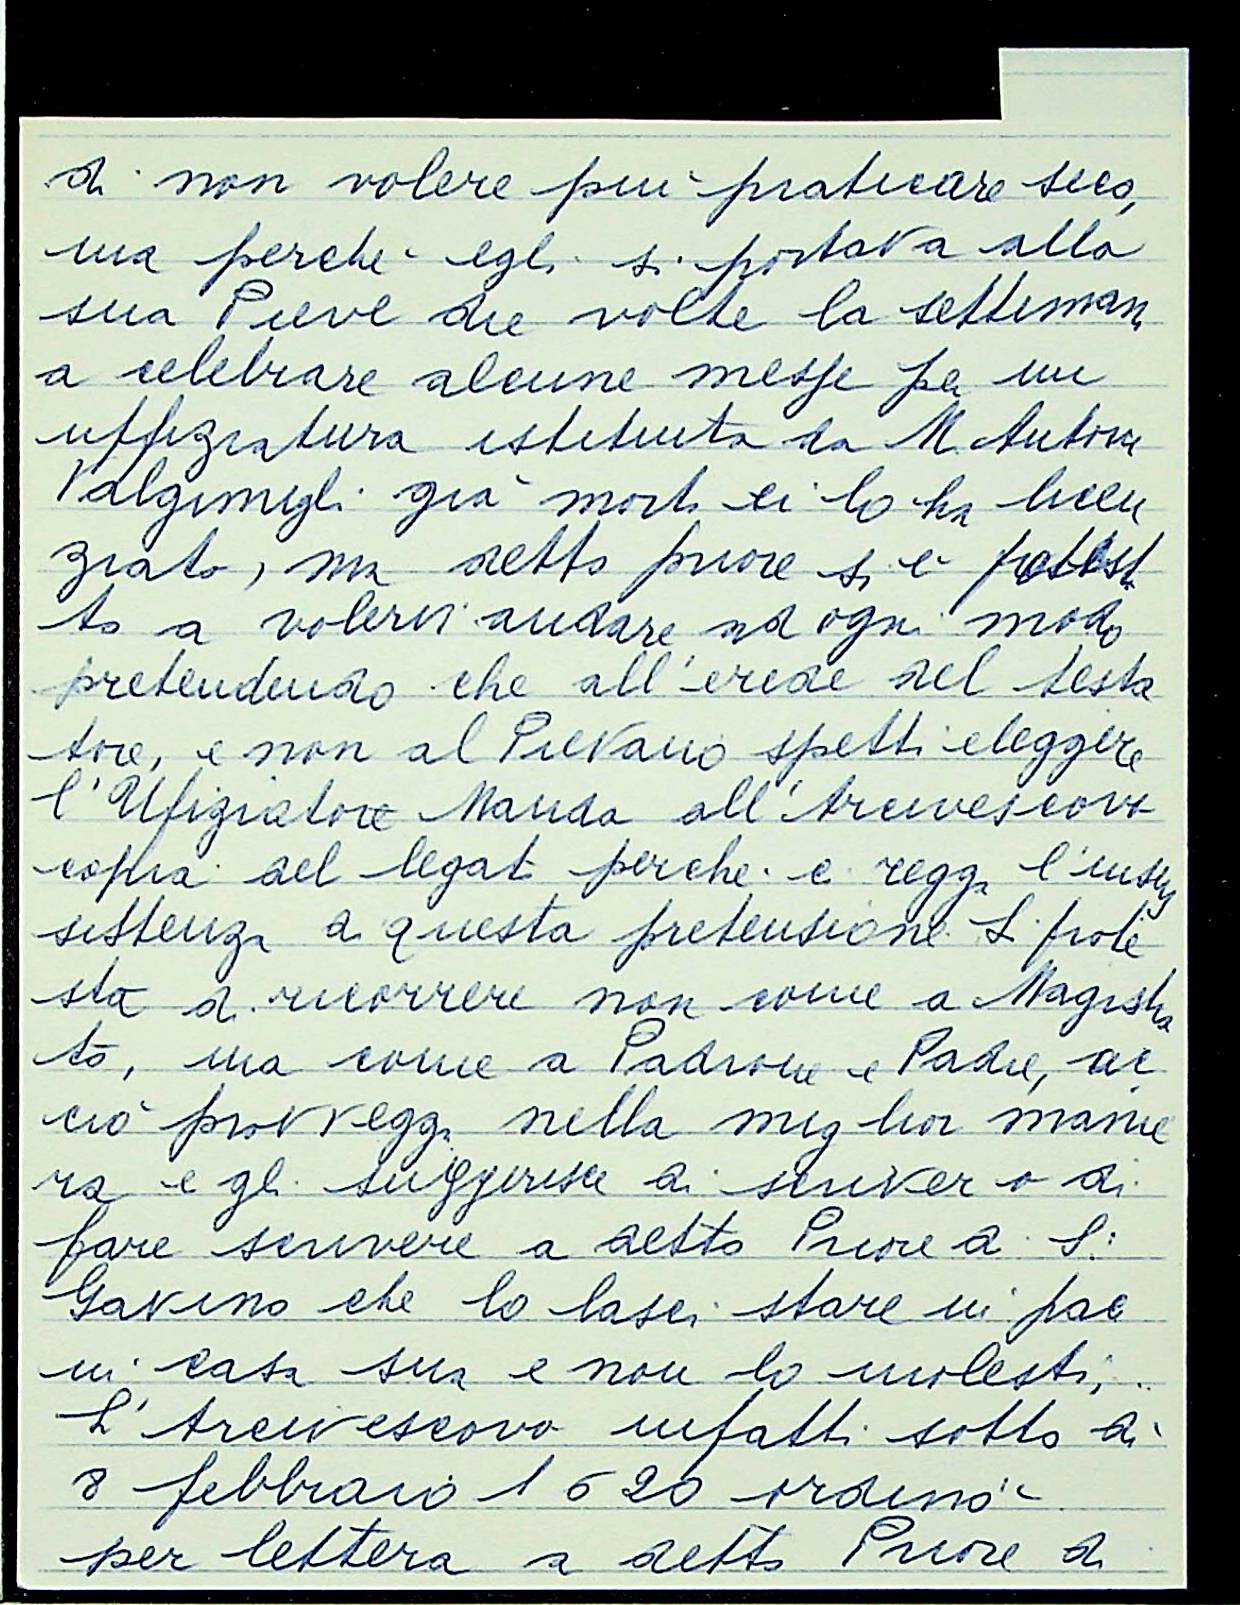 di non volere più praticare seco,
ma perché egli si portava alla
sua Pieve due volte la settiman
a celebrare alcune messe per un
uffiziatura istituita da M. Antonio
Valgimigli già morto ei lo ha licen
ziato, ma detto priore si è protesta
to a volervi andare ad ogni modo
pretendendo che all'erede del testa
tore, e non al Pievano spetti eleggere
l'Ufiziatore Manda all'Arcivescovo
copia del legato perché e regga l'insus
sistenza di questa pretensione. Si prote
sta di ricorrere non come a Magistra
to, ma come a Padrone e Padre, ac
ciò provvegga nella miglior manie
ra e gli suggerisce di scriver o di
fare scrivere a detto Priore di S.
Gavino che lo lasci stare in pace
in casa sua e non lo molesti,
L'Arcivescovo infatti sotto dì
8 febbraio 1620 ordinò
per lettera a detto Priore di